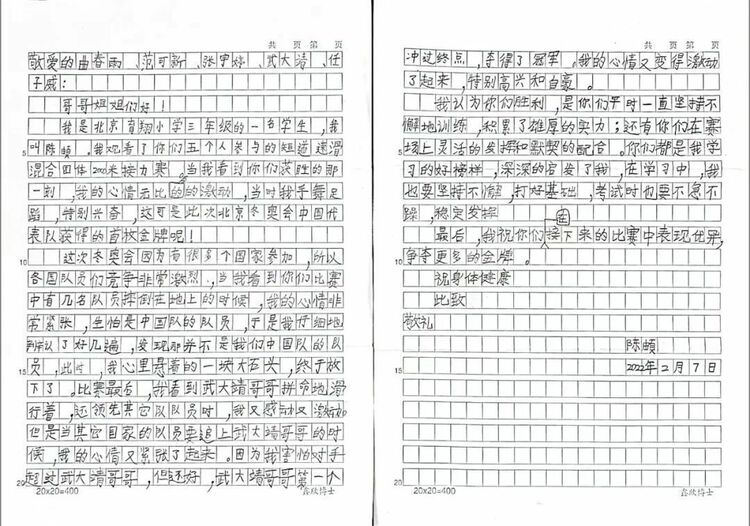 共 页 第 页
敬爱的曲春雨、范可新、张宇婷、武大靖、任
子威：
哥哥姐姐们好！
我是北京育翔小学三年级的一名学生，我
叫陈頔。我观看了你们五个人参与的短道速滑
混合团体2000米接力赛。当我看到你们获胜的那
一刻，我的心情无比的的激动，当时我手舞足
蹈，特别兴奋，这可是此次北京冬奥会中国代
表队获得的首枚金牌呢！
这次冬奥会因为有很多个国家参加，所以
各国队员们竞争非常激烈。当我看到你们比赛
中有几名队员摔倒在地上的时候，我的心情非
常紧张，生怕是中国队的队员，于是我仔细地
确认了好几遍，发现那并不是我们中国队的队
员，此时，我心里悬着的一块大石头，终于放
下了。比赛最后，我看到武大靖哥哥拼命地滑
行着，还领先其它队队员时，我又感动又激动。
但是当其它国家的队员要追上武大靖哥哥的时
候，我的心情又紧张了起来。因为我害怕对手
超过武大靖哥哥，但还好，武大靖哥哥第一个
20×20=400
鑫欣博士
共 页 第 页
冲过终点，夺得了冠军。我的心情又变得激动
了起来，特别高兴和自豪。
我认为你们胜利，是你们平时一直坚持不
懈地训练，积累了雄厚的实力；还有你们在赛
场上灵活的发挥和默契的配合。你们都是我学
习的好榜样，深深的启发了我，在学习中，我
也要坚持不懈，打好基础，考试时也要不急不
躁，稳定发挥。
最后，我祝你们在接下来的比赛中表现优异，
争夺更多的金牌。
祝身体健康
此致
敬礼
陈頔
2022年2月7日
20×20=400
鑫欣博士